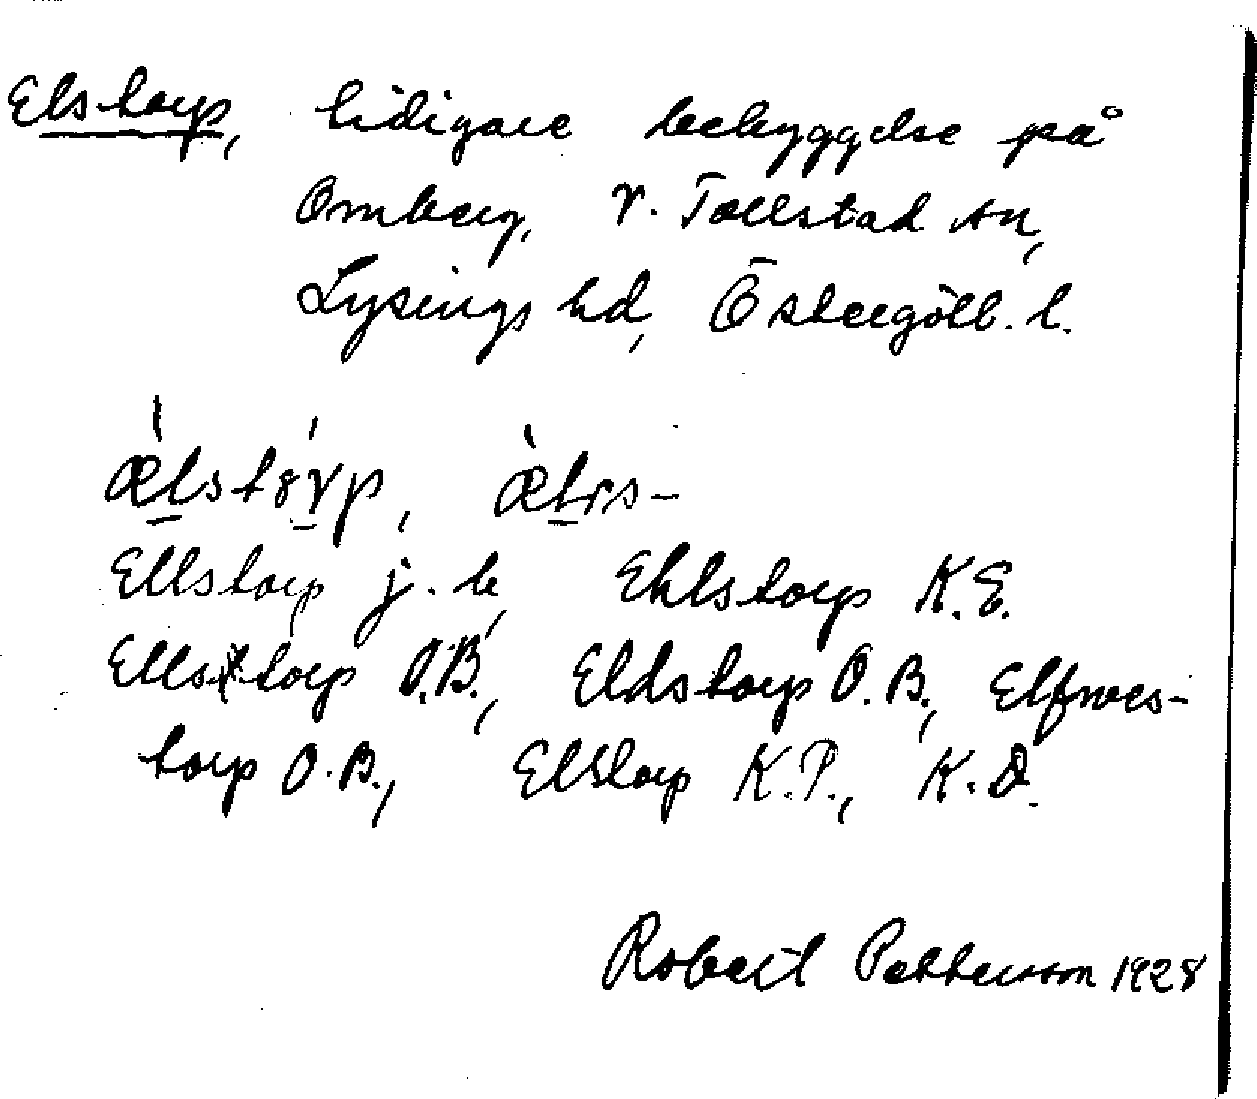 Elstorp, tidigare bebyggelse på
Omberg, V. Tollstad sn,
Lysings hd, Östergötl. l.
ælstórp, ælrs-
Ellstorp j.b, Ehlstorp K.E.
Ellstorp O.B., Eldstorp O.B., Elfwes-
torp O.B., Elstorp K.P., K.D.
Robert Pettersson 1928